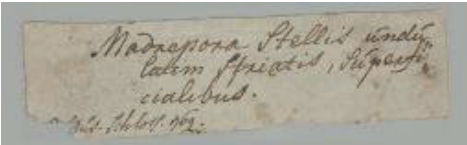 Madrepora Stellis undu„
latim Striatis, Superfi„
cialibus.
Mus. Schloss. 969.